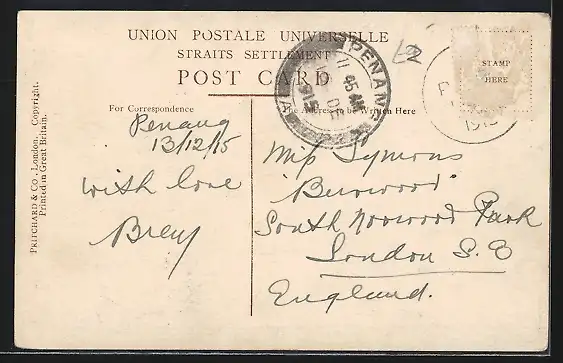 UNION POSTALE UNIVERSELLE
STRAITS SETTLEMENT
POST CARD
STAMP
HERE
PENANG
11 45 AM
DE
1915
1915
For Correspondence
The Address to be Written Here
PRITCHARD & Co., London. Copyright.
Printed in Great Britain.
Penang
13/12/15
With love
Miss Symons
"Burwood"
South Norwood Park
London S.E
England.